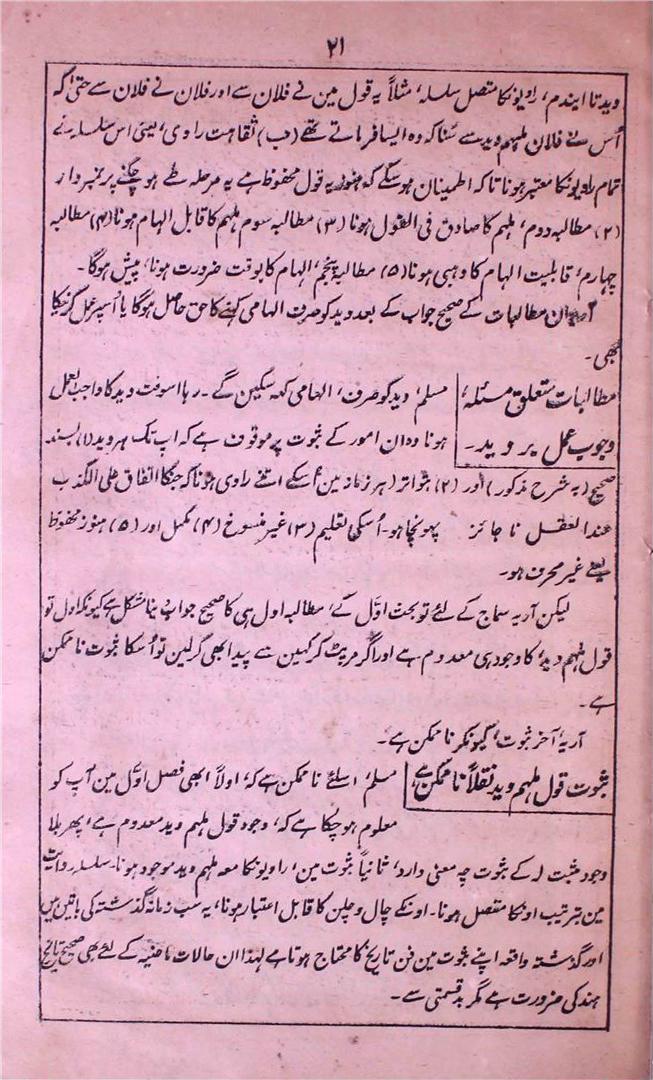 ۲۱
وید تا ایندم، راویونکا متصل سلسلہ، مثلاً یہ قول مین نے فلان سے اور فلان نے فلان سے حتیٰ کہ
اُس نے فلان ملہم وید سے سُنا کہ وہ ایسا فرماتے تھے (ب) ثقاہت راوی، یعنی اس سلسلہ نے
تمام راویونکا معتبر ہونا تاکہ اطمینان ہوسکے کہ ہنوز یہ قول محفوظ ہے یہ مرحلہ طے ہوچکنے پر نمبروار
(۲) مطالبہ دوم، ملہم کا صادق فی القول ہونا (۳) مطالبہ سوم ملہم کا قابل الہام ہونا (۴) مطالبہ
چہارم، قابلیت الہام کا وہبی ہونا (۵) مطالبہ پنجم، الہام کا بوقت ضرورت ہونا، پیش ہوگا۔
ان مطالبات کے صحیح جواب کے بعد وید کو صرف الہامی کہنے کا حق حاصل ہوگا یا اُسپر عمل کرنیکا
بھی۔
مطالبات متعلق مسئلہ مسلم، وید کو صرف، الہامی کہہ سکین گے۔ رہا اسوقت وید کا واجب العمل
وجوب عمل بر وید۔ ہونا وہ ان امور کے ثبوت پر موقوف ہے کہ اب تک ہر وید (۱) بسند
صحیح (بہ شرح مذکور) اور (۲) بتواتر (ہر زمانہ مین اُسکے اتنے راوی ہونا کہ جنکا اتفاق علی الکذب
عند العقل نا جائز پہونچا ہو۔ اُسکی تعلیم (۳) غیر منسوخ (۴) مکمل اور (۵) ہنوز محفوظ
یعنے غیر محرف ہو۔
لیکن آریہ سماج کے لئے تو بحث اوّل کے، مطالبہ اول ہی کا صحیح جواب دینا مشکل ہے کیونکہ اول تو
قول ملہم وید، کا وجود ہی معدوم ہے اور اگر مرپٹ کر کہین سے پیدا بھی کرلین تو اُسکا ثبوت ناممکن
ہے۔
آریہ، آخر ثبوت، کیونکر ناممکن ہے۔
ثبوت قول ملہم وید نقلاً ناممکن ہے مسلم، اسلئے ناممکن ہے کہ، اولاً ابھی فصل اوّل مین آپ کو
معلوم ہوچکا ہے کہ، وجود قول ملہم وید معدوم ہے، پھر بلا
وجود مثبت لہ کے ثبوت چہ معنی دارد، ثانیاً ثبوت مین، راویونکا معہ ملہم وید موجود ہونا۔ سلسلہ روایت
مین بترتیب اونکا متصل ہونا۔ اونکے چال وچلن کا قابل اعتبار ہونا، یہ سب زمانہ گذشتہ کی باتین ہین
اور گذشتہ واقعہ اپنے ثبوت مین فن تاریخ کا محتاج ہوتا ہے لہذا ان حالات ماضیہ کے لئے بھی صحیح تاریخ
ہند کی ضرورت ہے مگر بدقسمتی سے۔